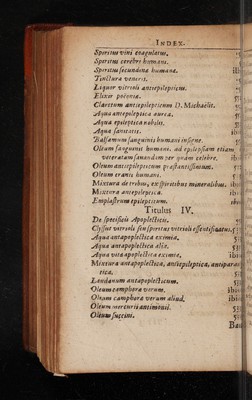 INDEX.
Spiritus vini coagulatus.
Spiritus cerebri humani.
Spiritus secundina humana.
Tinctura veneris.
Liquor vitrioli antiepilepticus.
Elixir pæoniæ.
Claretum antiepilepticum D. Michaëlis.
Aqua antepileptica aurea.
Aqua epileptica nobilis.
Aqua sanitatis.
Balsamum sanguinis humani insigne.
Oleum sanguinis humani, ad epilepsiam etiam
veteratam sanandam per quam celebre.
Oleum antiepilepticum præstantissimum.
Oleum cranii humani.
Mixtura de tribus, ex spiritibus mineralibus.
Mixtura antepileptica.
Emplastrum epilepticum.
Titulus IV.
De specificis Apoplecticis.
Clyssus vitrioli seu spiritus vitrioli essentificatus.
Aqua antapoplectica eximia.
Aqua antapoplectica alia.
Aqua vita apoplectica eximia,
Mixtura antapoplectica, antiepileptica, antiparaly
tica.
Laudanum antapoplecticum.
Oleum camphora verum.
Oleum camphora verum aliud.
Oleum mercurii antimonii.
Oleum succini.